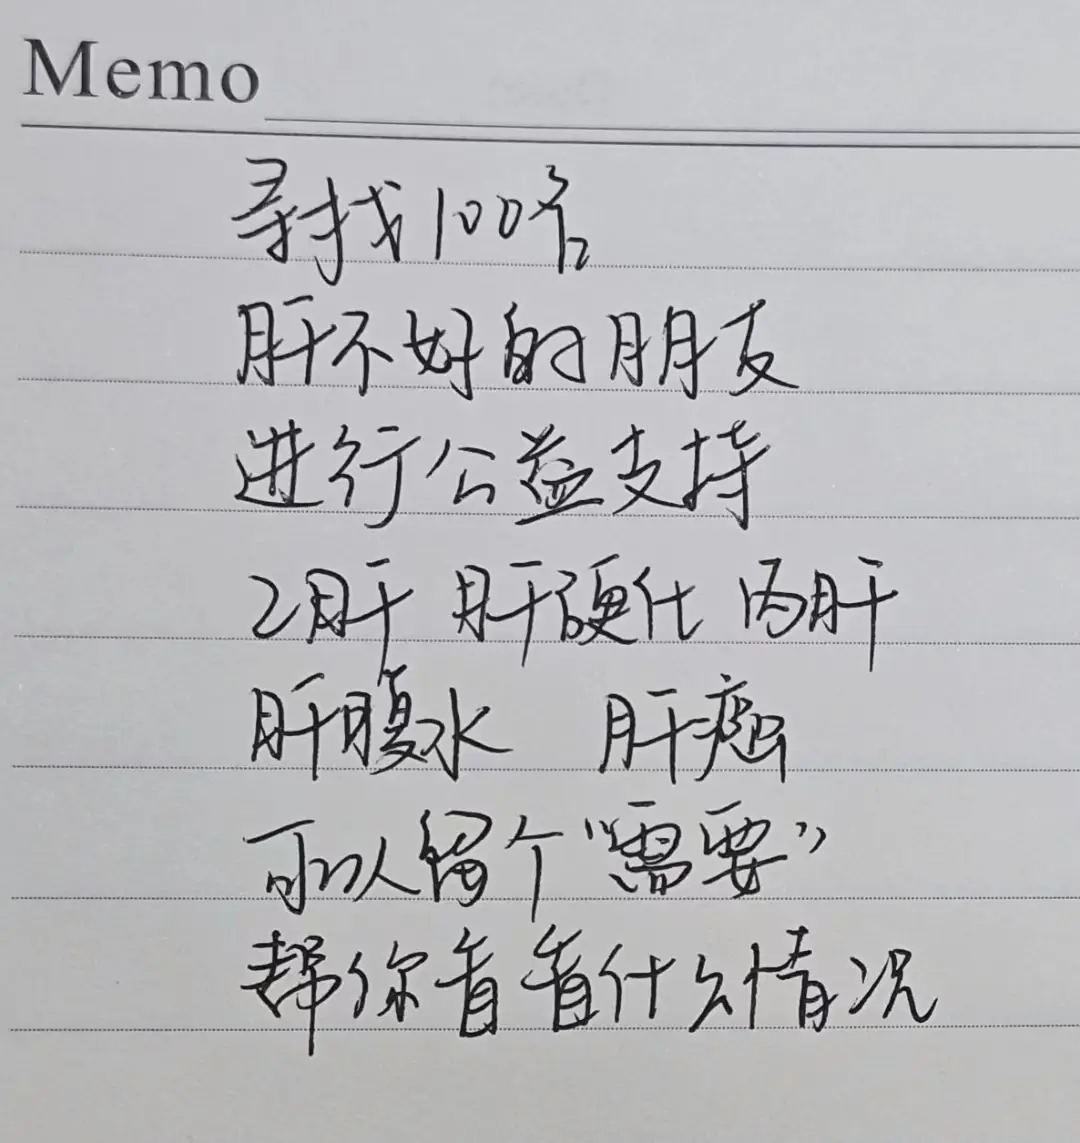 Memo
寻找100名
肝不好的朋友
进行公益支持
乙肝 肝硬化 丙肝
肝腹水 肝癌
可以留个“需要”
帮你看看什么情况